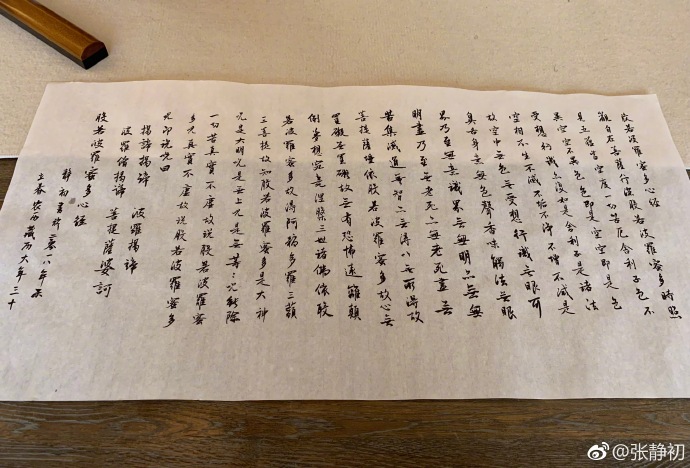 般若波羅蜜多心经
觀自在菩薩行深般若波羅蜜多時照
見五蘊皆空度一切苦厄舍利子色不
異空空不異色色即是空空即是色
受想行識亦復如是舍利子是諸法
空相不生不滅不垢不淨不增不減是
故空中無色無受想行識無眼耳
鼻舌身意無色聲香味觸法無眼
界乃至無意識界無無明亦無無
明盡乃至無老死亦無老死盡無
苦集滅道無智亦無得以無所得故
菩提薩埵依般若波羅蜜多故心無
罣礙無罣礙故無有恐怖遠離顛
倒夢想究竟涅槃三世諸佛依般
若波羅蜜多故得阿耨多羅三藐
三菩提故知般若波羅蜜多是大神
咒是大明咒是無上咒是無等:咒能除
一切苦真實不虛故説般若波羅蜜
多咒真實不虛故説般若波羅蜜多
咒即説咒曰
揭諦揭諦 波羅揭諦
波羅僧揭諦 菩提薩婆訶
般若波羅蜜多心经
静初書於二零一八年
立春 大年三十
@张静初